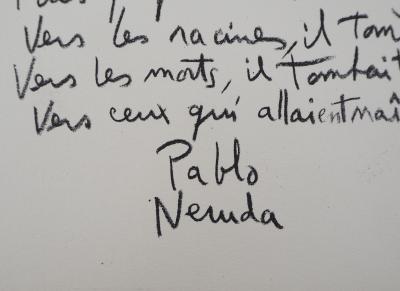 Vers les racines, il tom
Vers les morts, il tombait
Vers ceux qui allaient naî
Pablo
Neruda